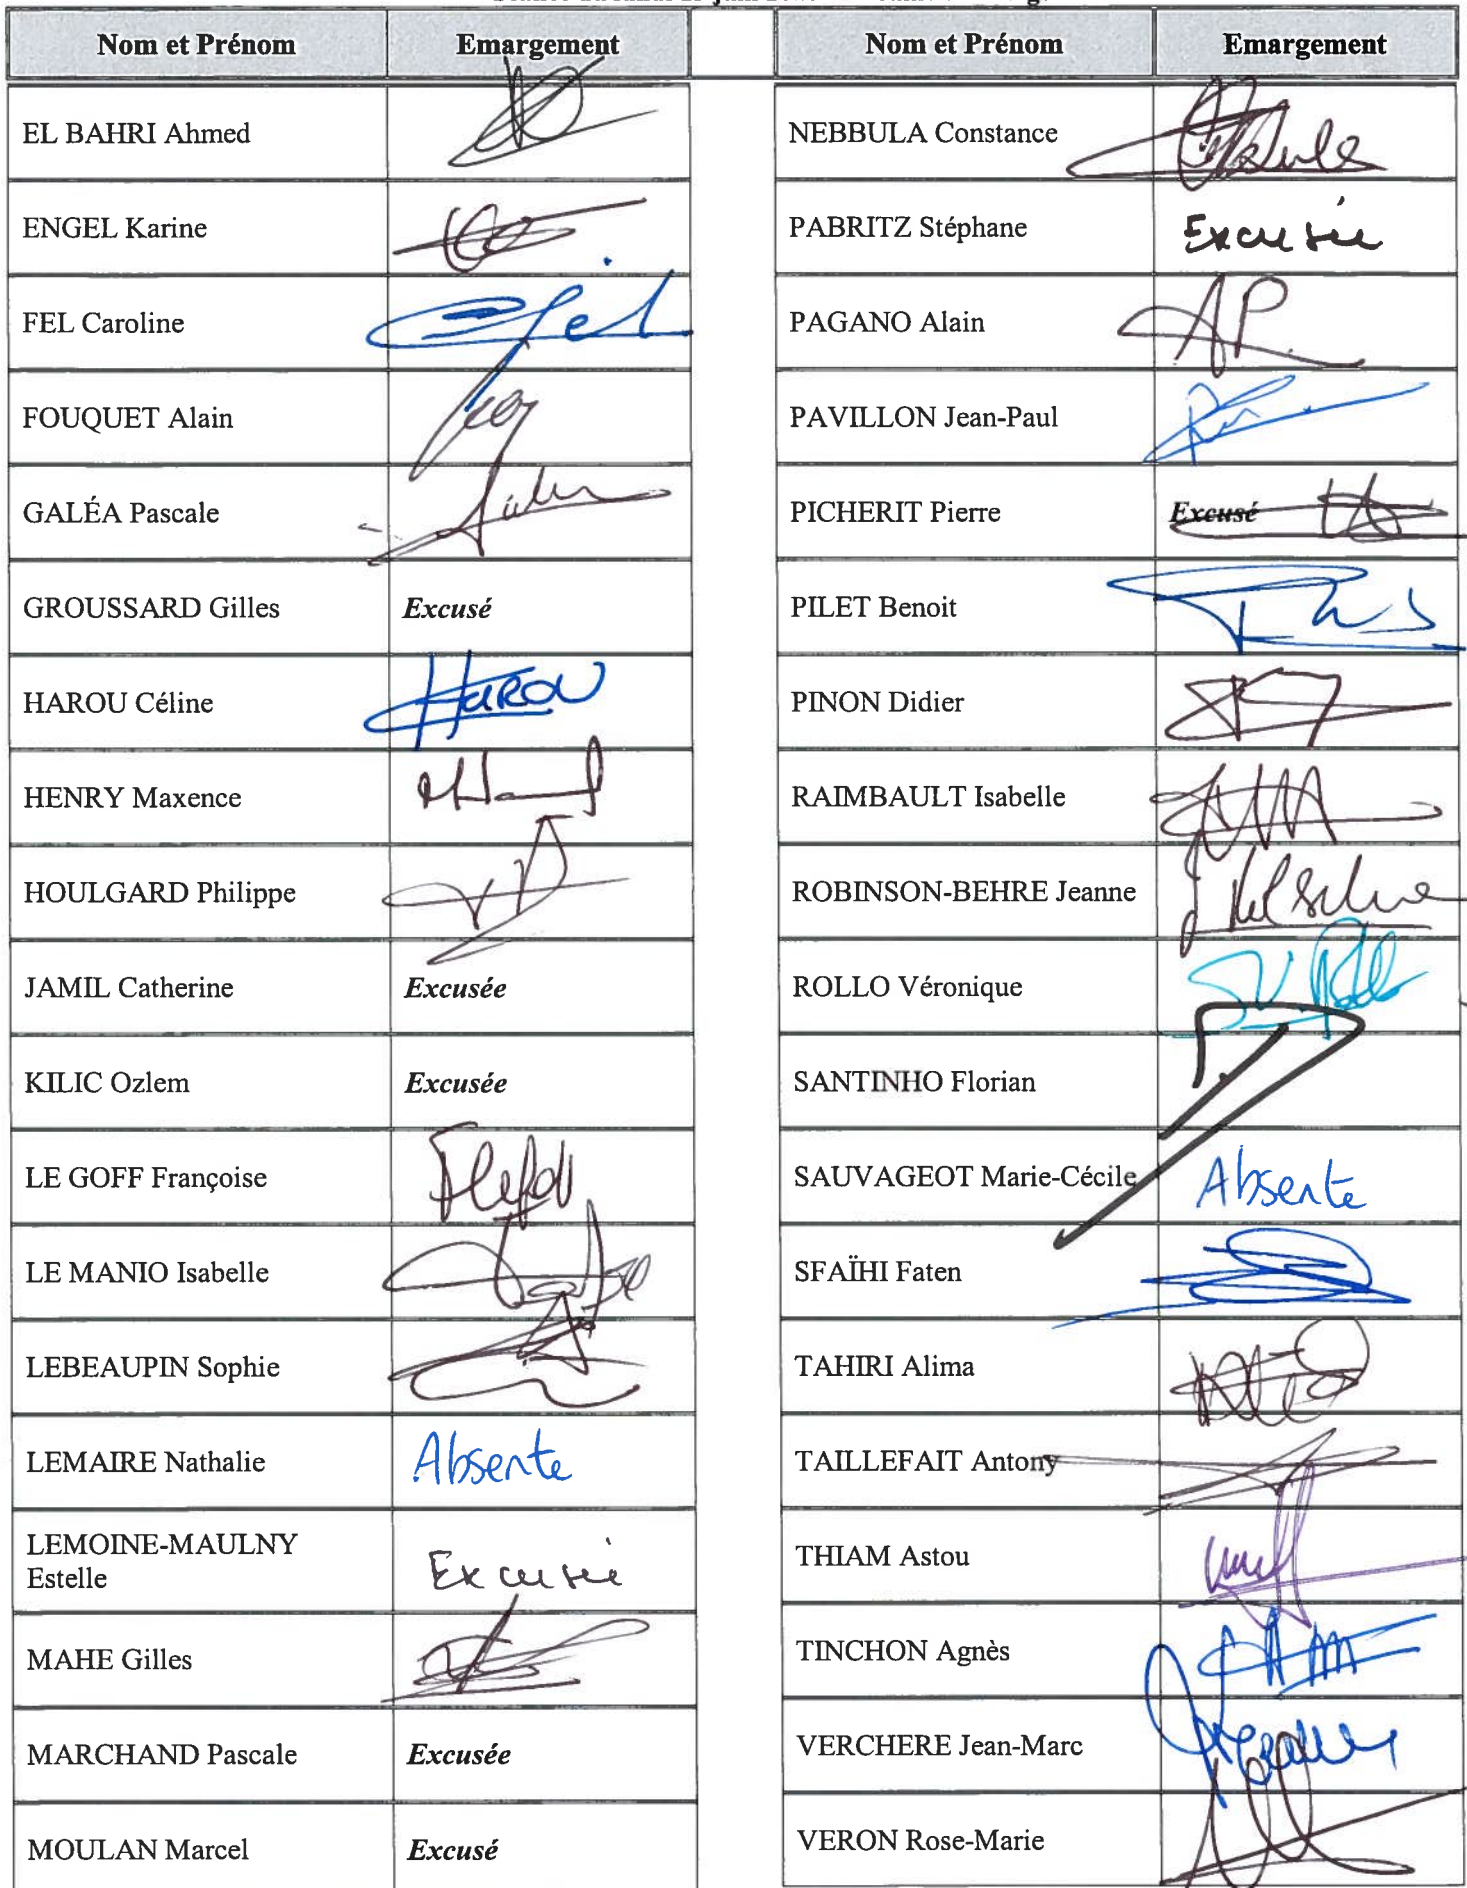 Nom et Prénom Emargement
EL BAHRI Ahmed
ENGEL Karine
FEL Caroline
FOUQUET Alain
GALÉA Pascale
GROUSSARD Gilles Excusé
HAROU Céline HAROU
HENRY Maxence
HOULGARD Philippe
JAMIL Catherine Excusée
KILIC Ozlem Excusée
LE GOFF Françoise
LE MANIO Isabelle
LEBEAUPIN Sophie
LEMAIRE Nathalie Absente
LEMOINE-MAULNY
Estelle Excusée
MAHE Gilles
MARCHAND Pascale Excusée
MOULAN Marcel Excusé
Nom et Prénom Emargement
NEBBULA Constance
PABRITZ Stéphane Excusée
PAGANO Alain AP
PAVILLON Jean-Paul
PICHERIT Pierre Excusé
PILET Benoit
PINON Didier
RAIMBAULT Isabelle
ROBINSON-BEHRE Jeanne
ROLLO Véronique
SANTINHO Florian
SAUVAGEOT Marie-Cécile Absente
SFAÏHI Faten
TAHIRI Alima
TAILLEFAIT Antony
THIAM Astou
TINCHON Agnès
VERCHERE Jean-Marc
VERON Rose-Marie